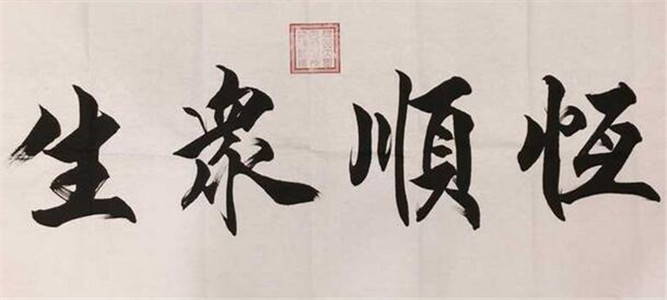 恆順眾生